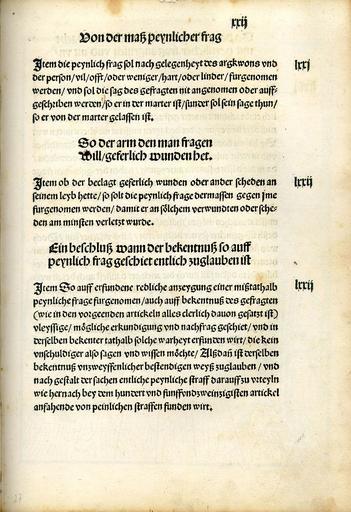 xxij
Von der maß peynlicher frag
Item die peynlich frag sol nach gelegenheyt des argkwons vnd lxxj
der person/ vil/ offt/ oder weniger/ hart/ oder linder/ furgenomen
werden/ vnd sol die sag des gefragten nit angenomen oder auff-
geschriben werden/ so er in der marter ist/ sunder sol sein sage thun/
so er von der marter gelassen ist.
So der arm den man fragen
Will/ geferlich wunden het.
Item ob der beclagt geferlich wunden oder ander scheden an lxxij
seinem leyb hette/ so solt die peynlich frage dermassen gegen jme
furgenomen werden/ damit er an sölchem verwundten oder sche-
den am minsten verletzt wurde.
Ein beschluß wann der bekentnuß so auff
peynlich frag geschiet entlich zuglauben ist
Item So auff erfundene redliche anzeygung einer mißtathalb lxxij
peynliche frage furgenomen/ auch auff bekentnuß des gefragten
(wie in den vorgeenden artickeln alles clerlich dauon gesatzt ist)
vleyssige/ mögliche erkundigung vnd nachfrag geschiet/ vnd in
derselben bekenter tathalb solche warheyt erfunden wirt/ die kein
vnschuldiger also sagen vnd wissen möchte/ Alßdañ ist derselben
bekentnuß vnzweyffenlicher bestendigen weyß zuglauben/ vnd
nach gestalt der sachen entliche peynliche straff darauff zu vrteyln
wie hernach bey dem hundert vnd funffvndzweinzigisten artickel
anfahende von peinlichen straffen funden wirt.